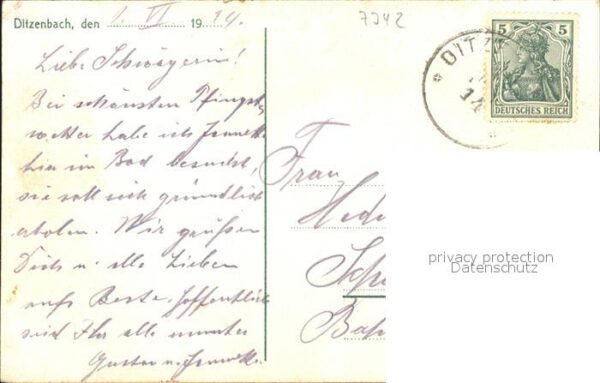 Ditzenbach, den 1. VI 1914.
7342
Liebe Schwägerin!
Bei schönstem Pfingst-
wetter habe ich
hier im Bad besucht,
sie soll sich gründlich
erholen. Wir grüßen
Dich u. alle Lieben
aufs Beste. Hoffentlich
seid Ihr alle munter
Gustav u.
Frau
5 5
DEUTSCHES REICH
DITZ
14
privacy protection
Datenschutz